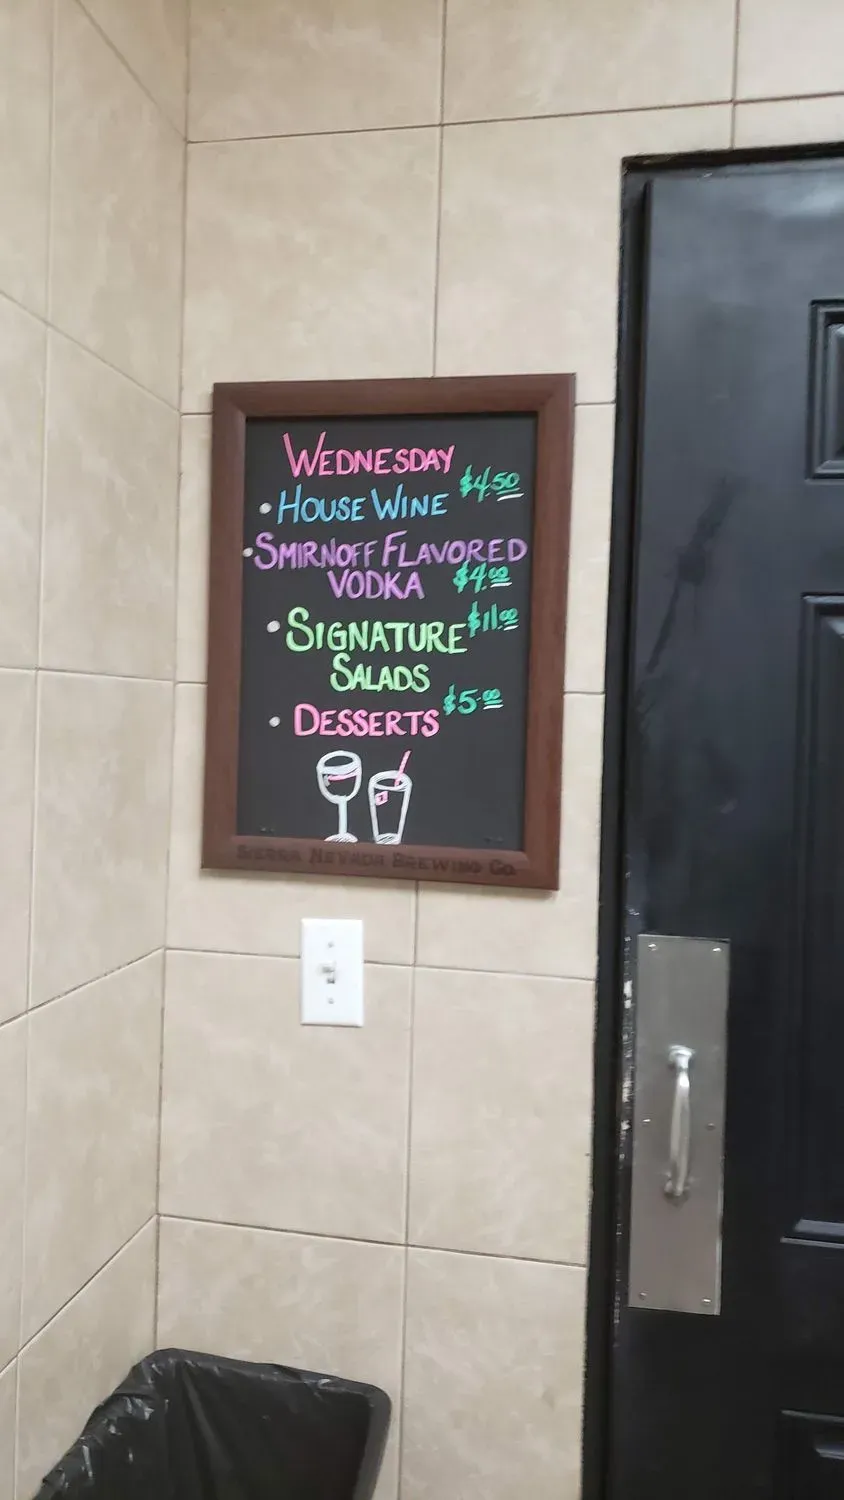 WEDNESDAY
• HOUSE WINE $4.50
• SMIRNOFF FLAVORED
VODKA $4.00
• SIGNATURE $11.00
SALADS
• DESSERTS $5.00
SIERRA NEVADA BREWING CO.